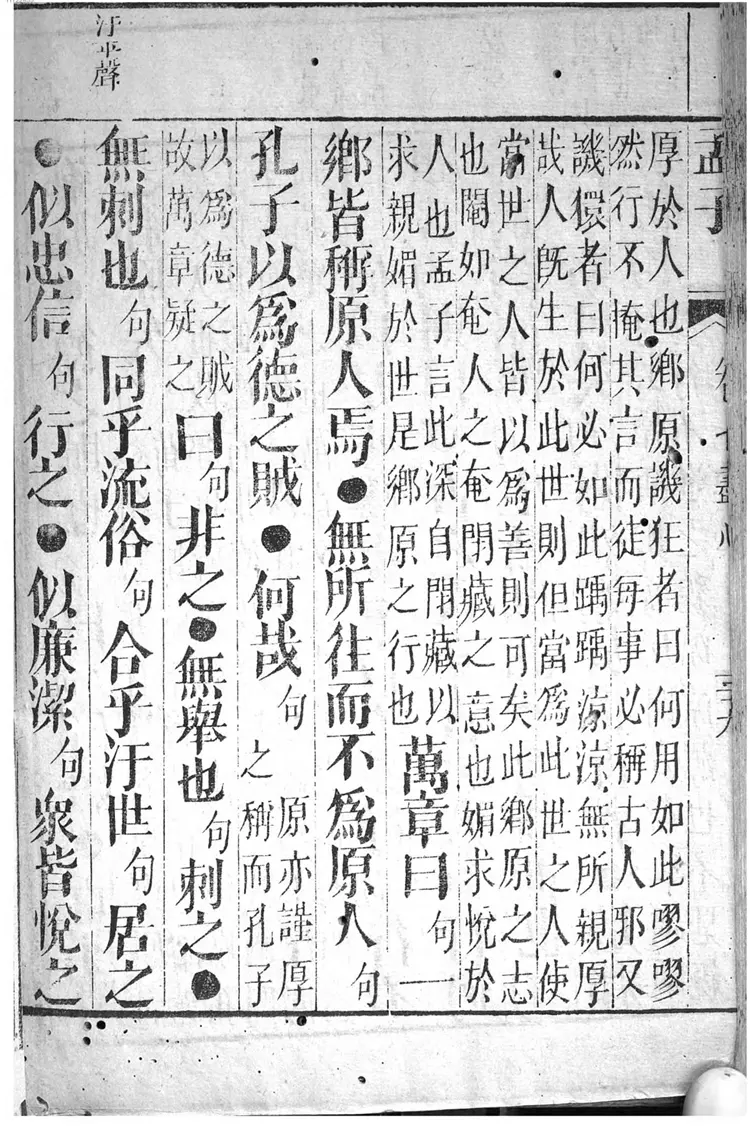 孟子 卷七盡心 三九
厚於人也鄉原譏狂者曰何用如此嘐嘐
然行不掩其言而徒每事必稱古人邪又
譏獧者曰何必如此踽踽涼涼無所親厚
哉人旣生於此世則但當爲此世之人使
當世之人皆以爲善則可矣此鄉原之志
也閹如奄人之奄閉藏之意也媚求悅於
人也孟子言此深自閉藏以
求親媚於世是鄉原之行也
萬章曰句一
鄉皆稱原人焉●無所往而不爲原人句
孔子以爲德之賊●何哉句
原亦謹厚
之稱而孔子
以爲德之賊
故萬章疑之
曰句非之●無舉也句刺之●
無刺也句同乎流俗句合乎汙世句居之
●似忠信句行之●似廉潔句衆皆悅之
汙平聲